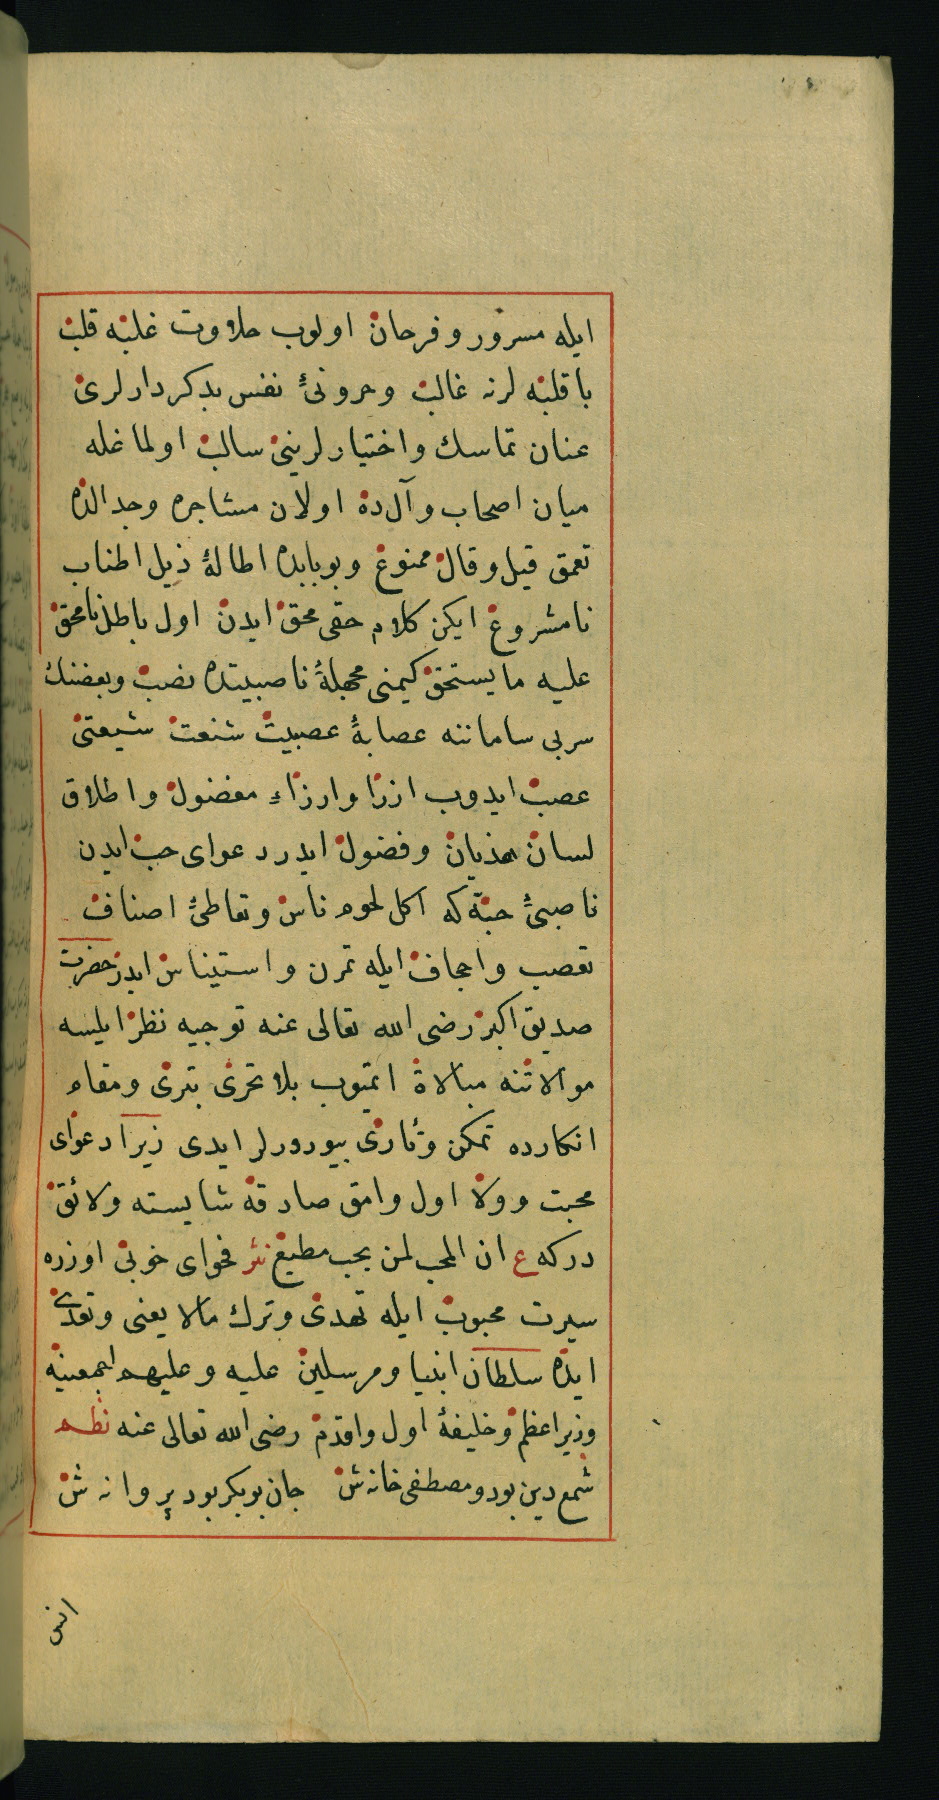 ايله مسرور و فرحان اولوب حلاوت غلبه قلب
باقلبه لرنه غالب و حرونئ نفس بدكردارلرى
عنان تماسك واختيارلرينى سالب اولمغله
ميان اصحاب وآل ده اولان مشاجره وجدالده
تعمق قيل وقال ممنوع وبوبابده اطالۀ ذيل اطناب
نامشروع ايكن كلام حقى محق ايدن اول باطل نامحق
عليه ما يستحق كيمنى مجهلۀ ناصبيتده نصب وبعضنك
سر بى سامانه عصابۀ عصبيت شنعت شيعتى
عصب ايدوب ازرا وارزاء مفضول واطلاق
لسان هذيان وفضول ايدر دعواى حب ايدن
ناصبئ حبه كه اكل لحوم ناس وتعاطئ اصناف
تعصب واجحاف ايله تمرن واستيناس ايدر حضرت
صديق اكبر رضى الله تعالى عنه توجيه نظر ايلسه
موالاتنه مبالاة ايتميوب بلا تحرى تبرى ومقام
انكارده تمكن وتأرى بيوررلر ايدى زيرا دعواى
محبت وولا اول وامق صادقه شايسته ولائق
دركه ع ان المحب لمن يحب مطيع نثر فحواى خوبى اوزره
سيرت محبوب ايله تهدى وترك مالا يعنى وتعدى
ايده سلطان انبيا ومرسلين عليه وعليهم اجمعينه
وزير اعظم وخليفۀ اول واقدم رضى الله تعالى عنه نظم
شمع دين بود و مصطفى خانه ش جان بوبكر بود پروانه ش
انس